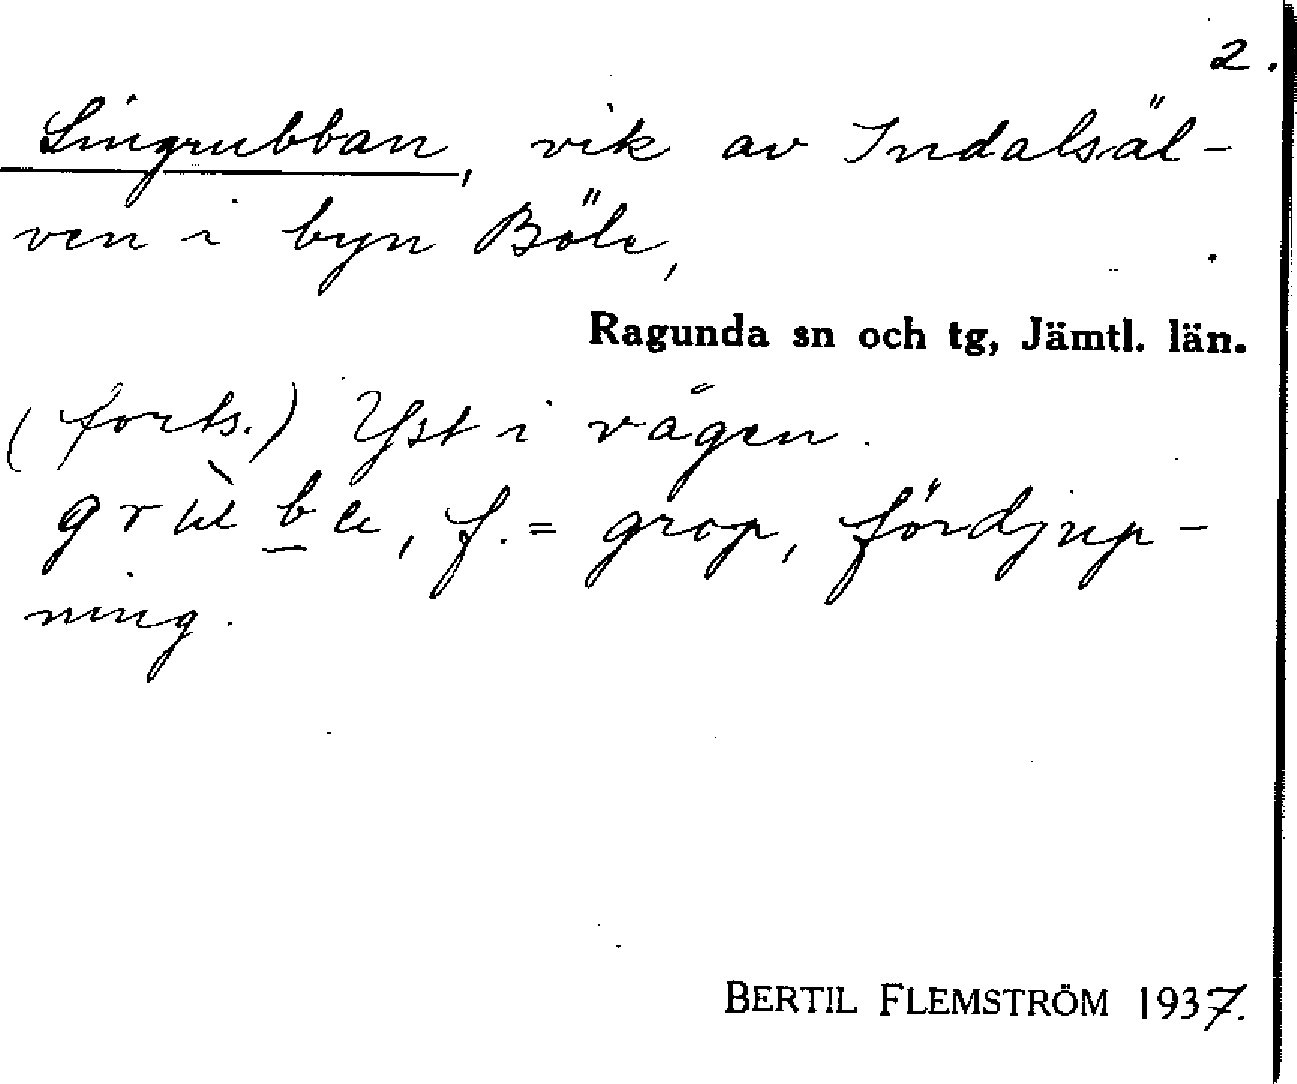 2.
Lingrubban, vik av Indalsäl-
ven i byn Böle,
Ragunda sn och tg, Jämtl. län.
(forts.) Yst i vågen.
f. = grop, fördjup-
ning.
BERTIL FLEMSTRÖM 1937.